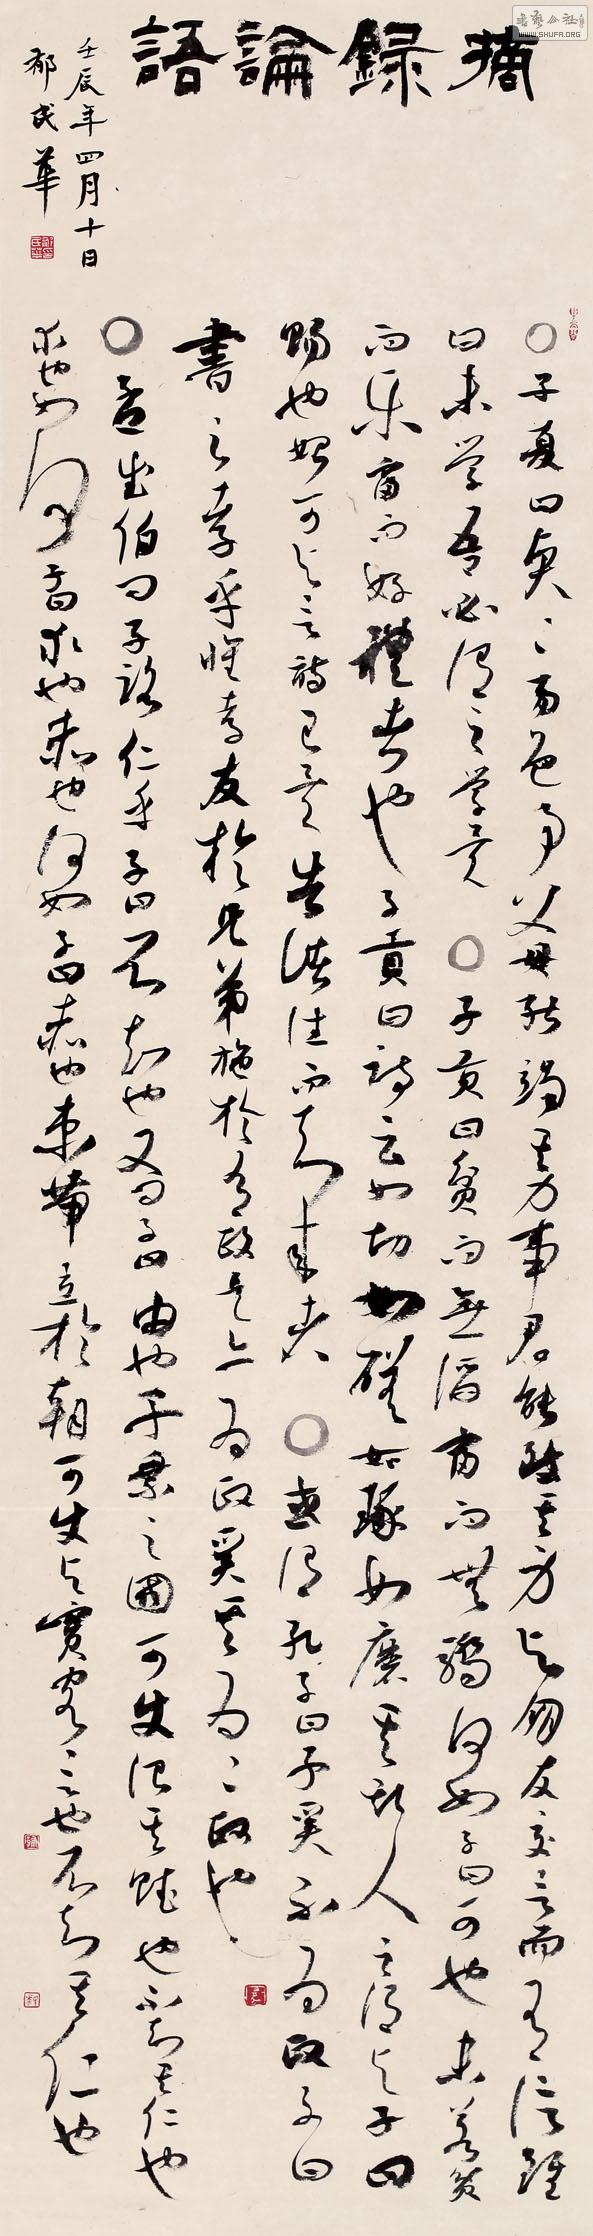 摘錄論語
○子夏曰賢〻易色事父母能竭其力事君能致其身与朋友交言而有信雖
曰未学吾必謂之学矣○子貢曰貧而無諂富而無驕何如子曰可也未若貧
而乐富而好禮者也子貢曰詩云如切如磋如琢如磨其斯人之謂与子曰
賜也始可与言詩已矣告諸往而知来者○或謂孔子曰子奚不为政子曰
書云孝乎惟孝友於兄弟施於有政是亦为政奚其为〻政也
○孟武伯问子路仁乎子曰不知也又问子曰由也千乘之國可使治其賦也不知其仁也
求也如何子曰求也赤也何如子曰赤也束帶立於朝可使与賓客言也不知其仁也
壬辰年四月十日
民華
WWW.SHUFA.ORG